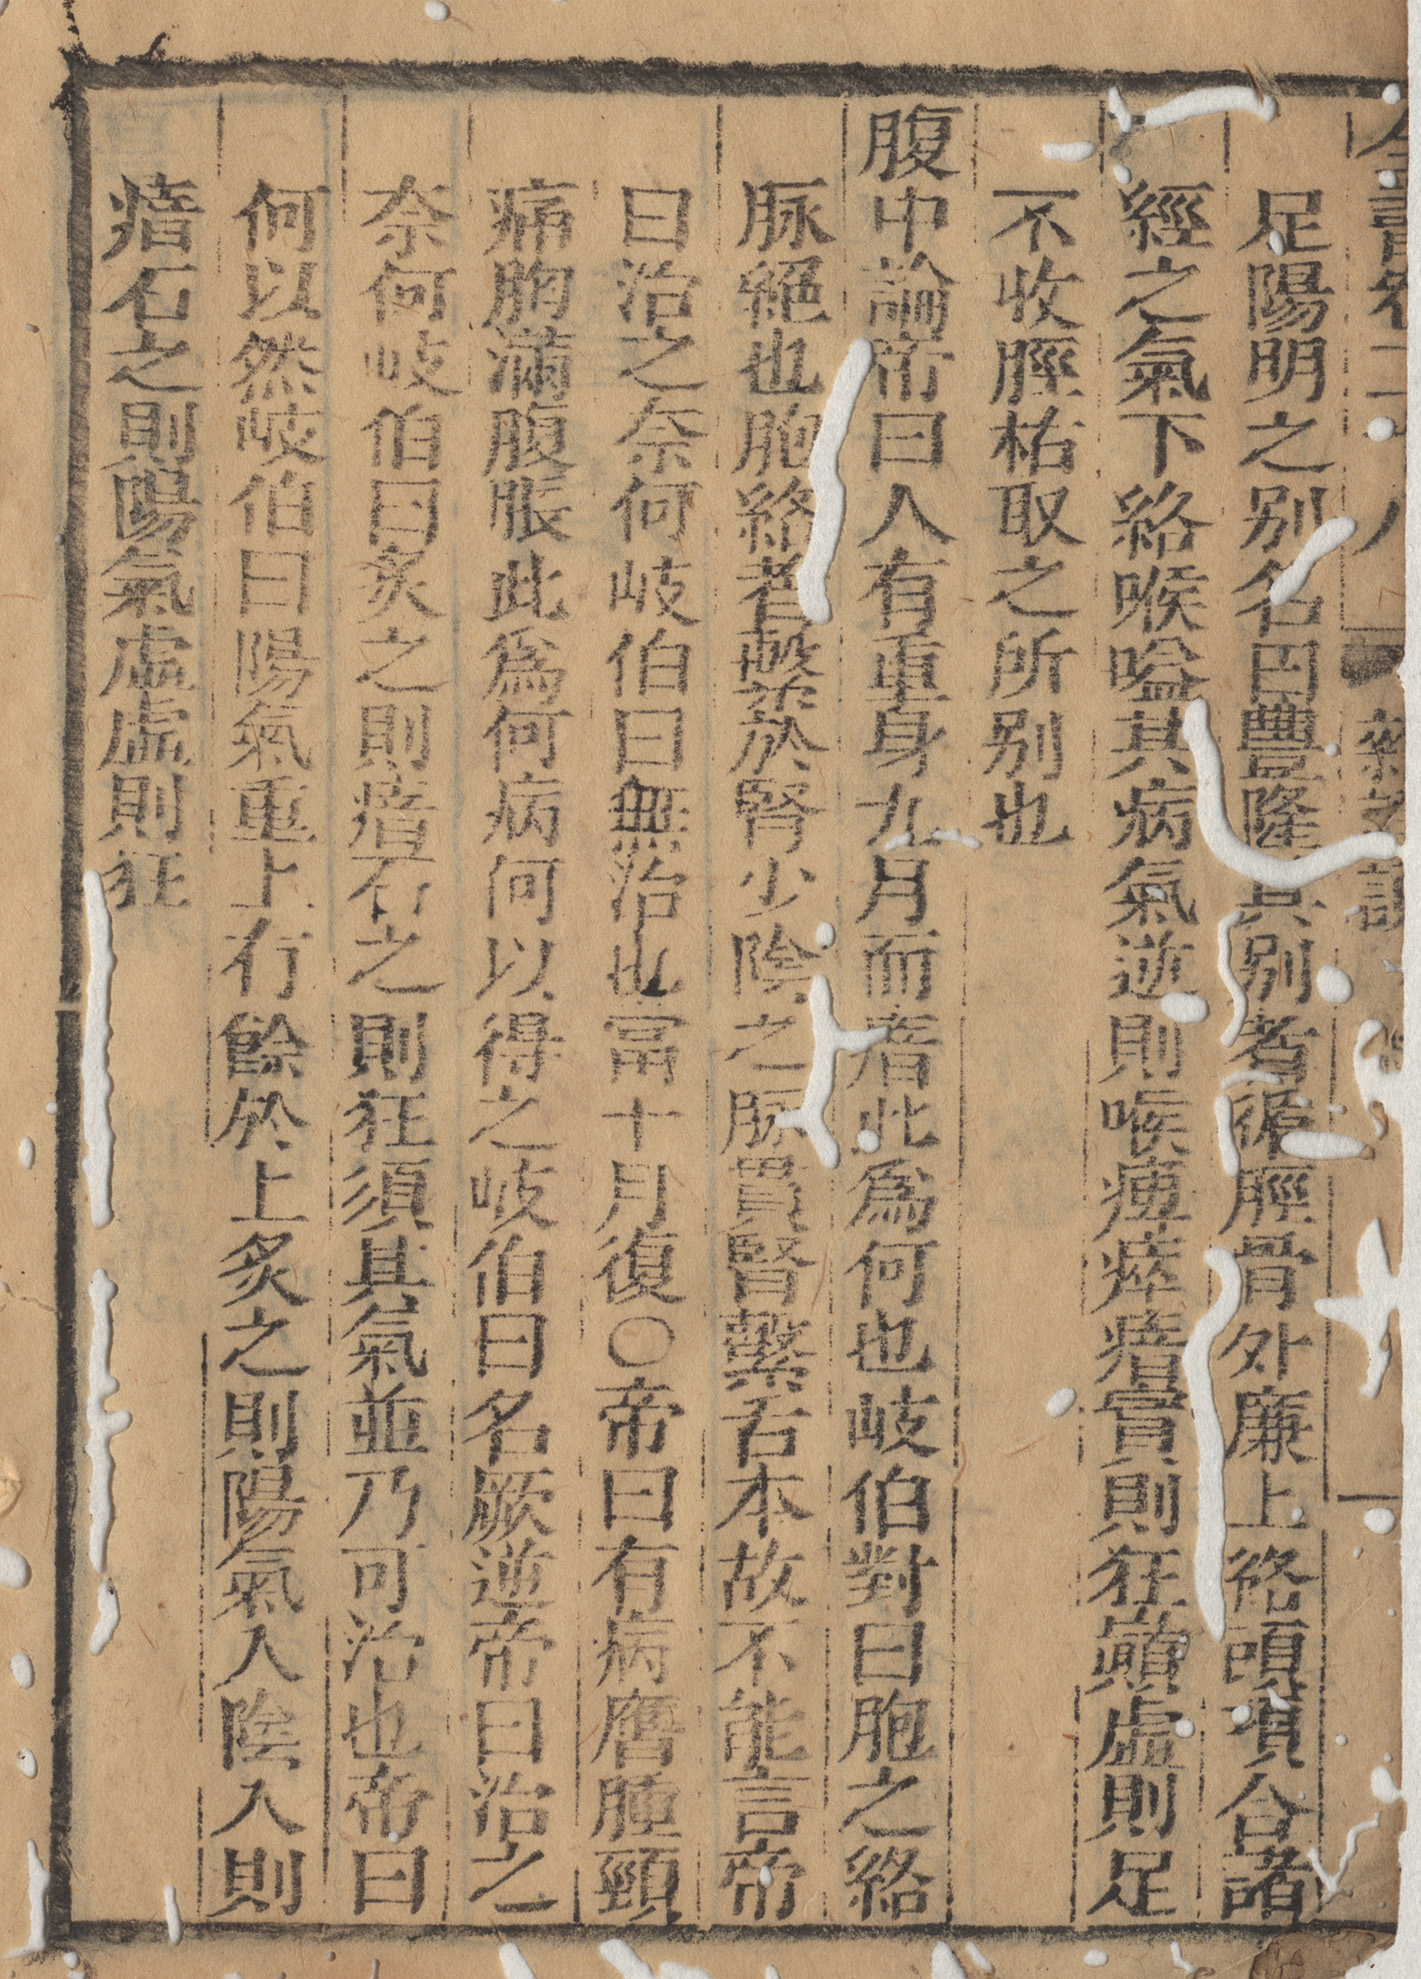 全書卷二十八 雜證謨
足陽明之別名曰豐隆其別者循脛骨外廉上絡頭項合諸
經之氣下絡喉嗌其病氣逆則喉痺瘁瘖實則狂巓虛則足
不收脛枯取之所別也
腹中論帝曰人有重身九月而瘖此為何也岐伯對曰胞之絡
脉絕也胞絡者繫於腎少陰之脉貫腎繫舌本故不能言帝
曰治之奈何岐伯曰無治也當十月復○帝曰有病膺腫頸
痛胸滿腹脹此為何病何以得之岐伯曰名厥逆帝曰治之
奈何岐伯曰炙之則瘖石之則狂須其氣並乃可治也帝曰
何以然岐伯曰陽氣重上有餘於上炙之則陽氣入陰入則
瘖石之則陽氣虛虛則狂